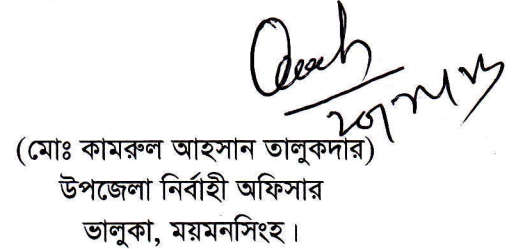 (মোঃ কামরুল আহসান তালুকদার)
উপজেলা নির্বাহী অফিসার
ভালুকা, ময়মনসিংহ।